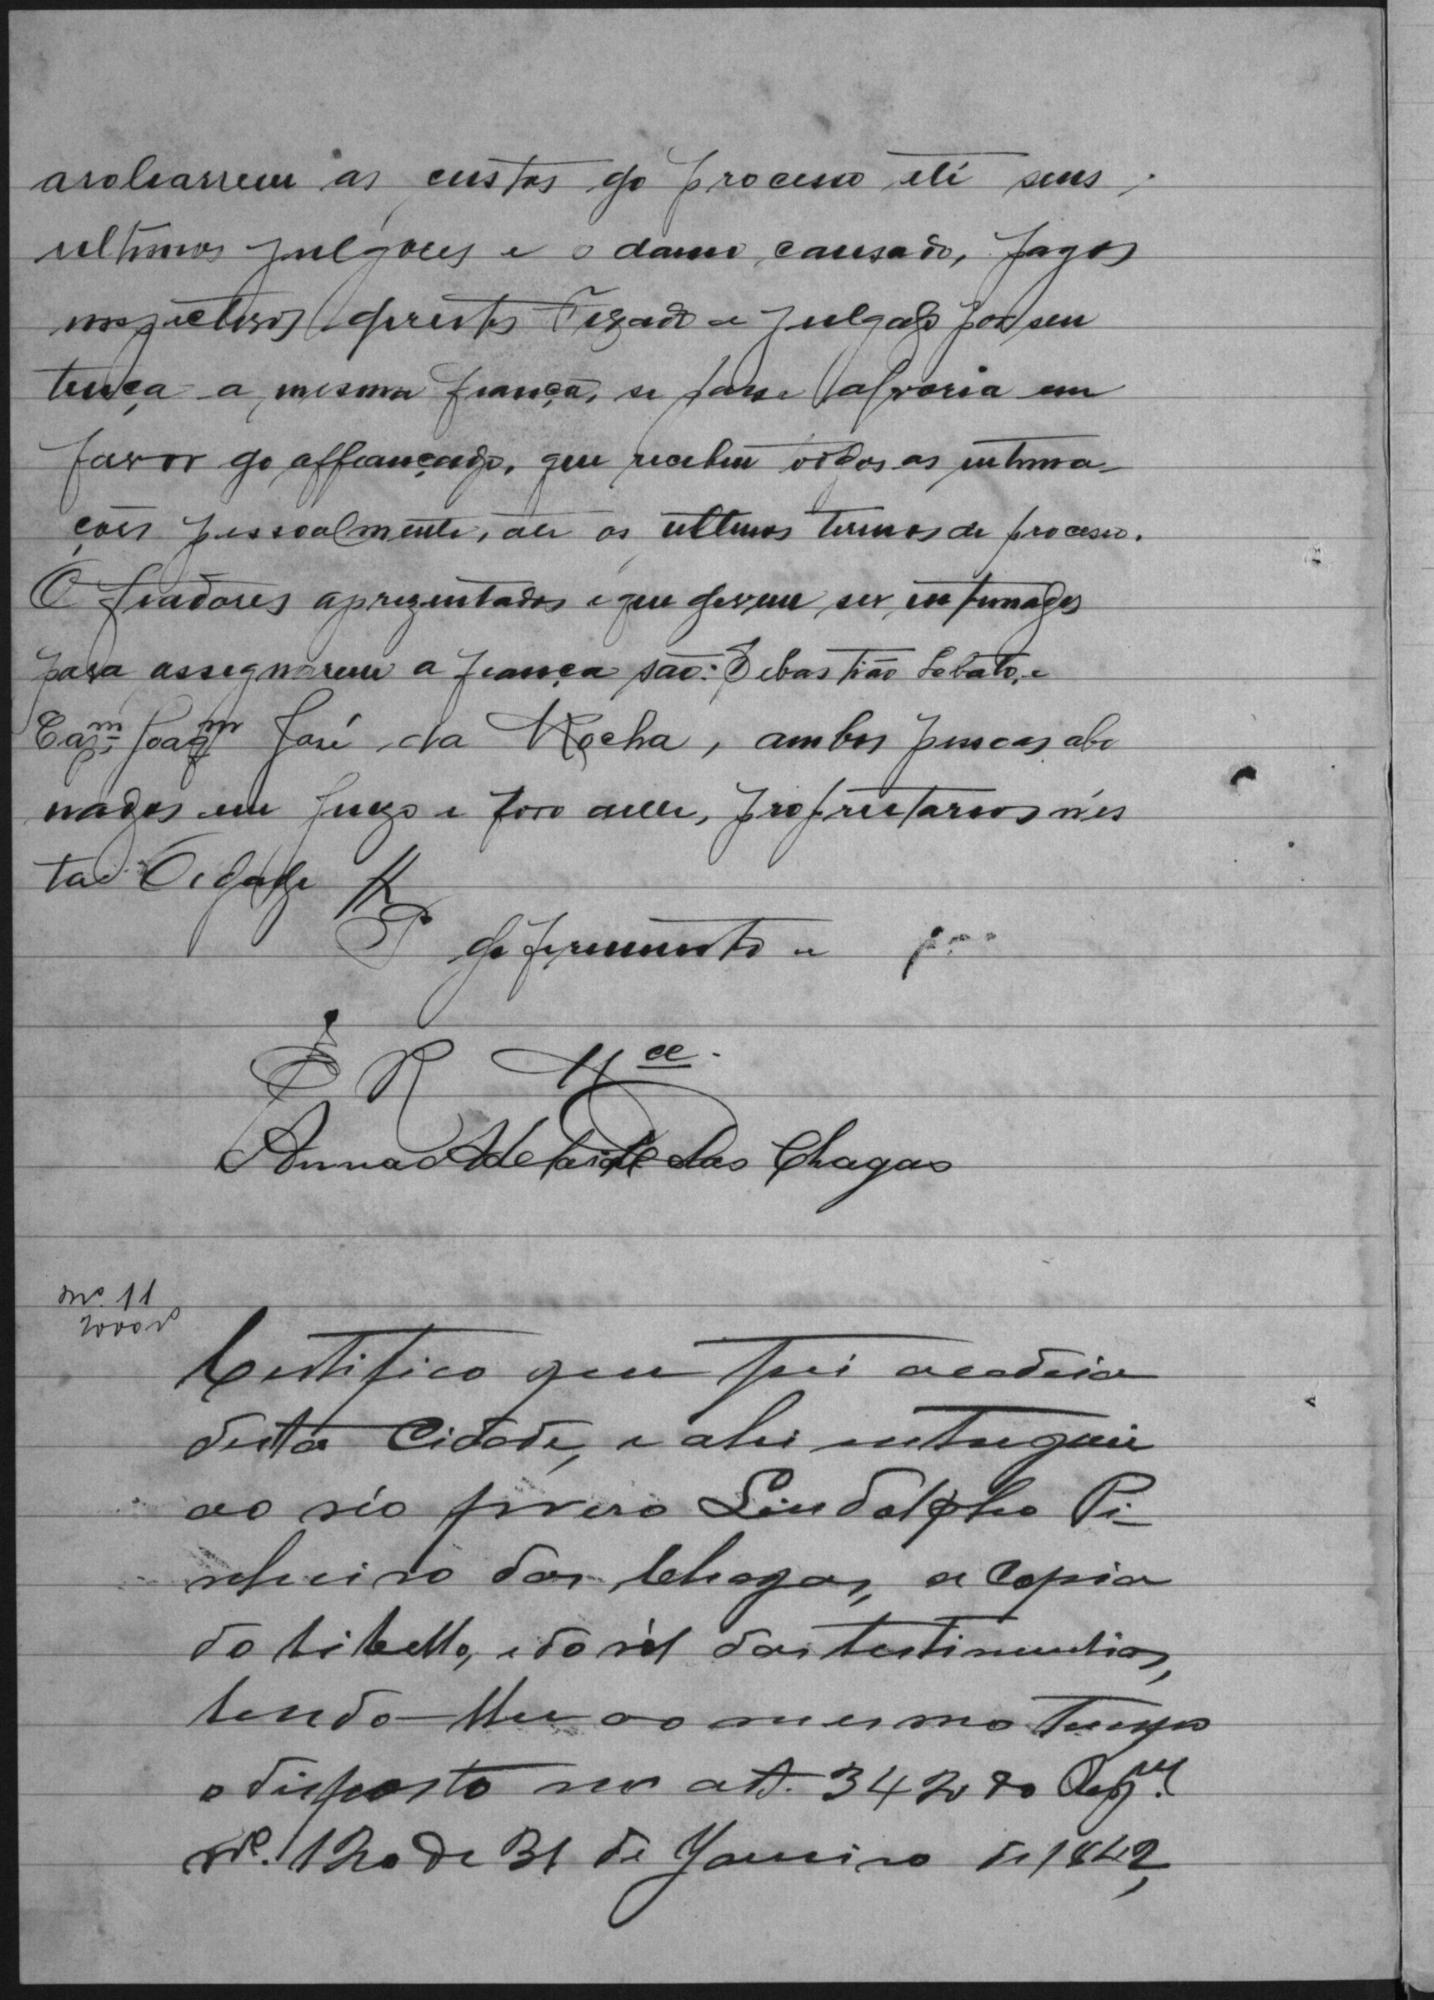 as custas do processo até seus
ultimos julgdores e o damno causado, pagos
respectivos direitos Fixado e julgado por sen
tença a mesma fiança, se passe alvaria em
favor do affiançado, que recebeu todas as intima-
ções pessoalmente, até os ultimos termos de processo.
O fiadores aprezentados e que devem ser intimados
para assegnarem a fiança são: Sebastião Lobato, e
Capm Joaqm José da Rocha, ambos pessoas abo
nados em juizo e fora delle, proprietarios n'es
ta Cidade
P deferimento e
E R Mce.
Anna Adelaide das Chagas
No. 11
2000rs
Certifico que fui a cadeia
desta Cidade, e ahi entreguei
ao réo prezo Lindolpho Pi-
nheiro das Chagas, a copia
do libello, e do ról das testimunhas,
lendo-lhe ao mesmo tempo
o disposto no art. 342 do Regul.
no. 120 de 31 de Janeiro de 1842,